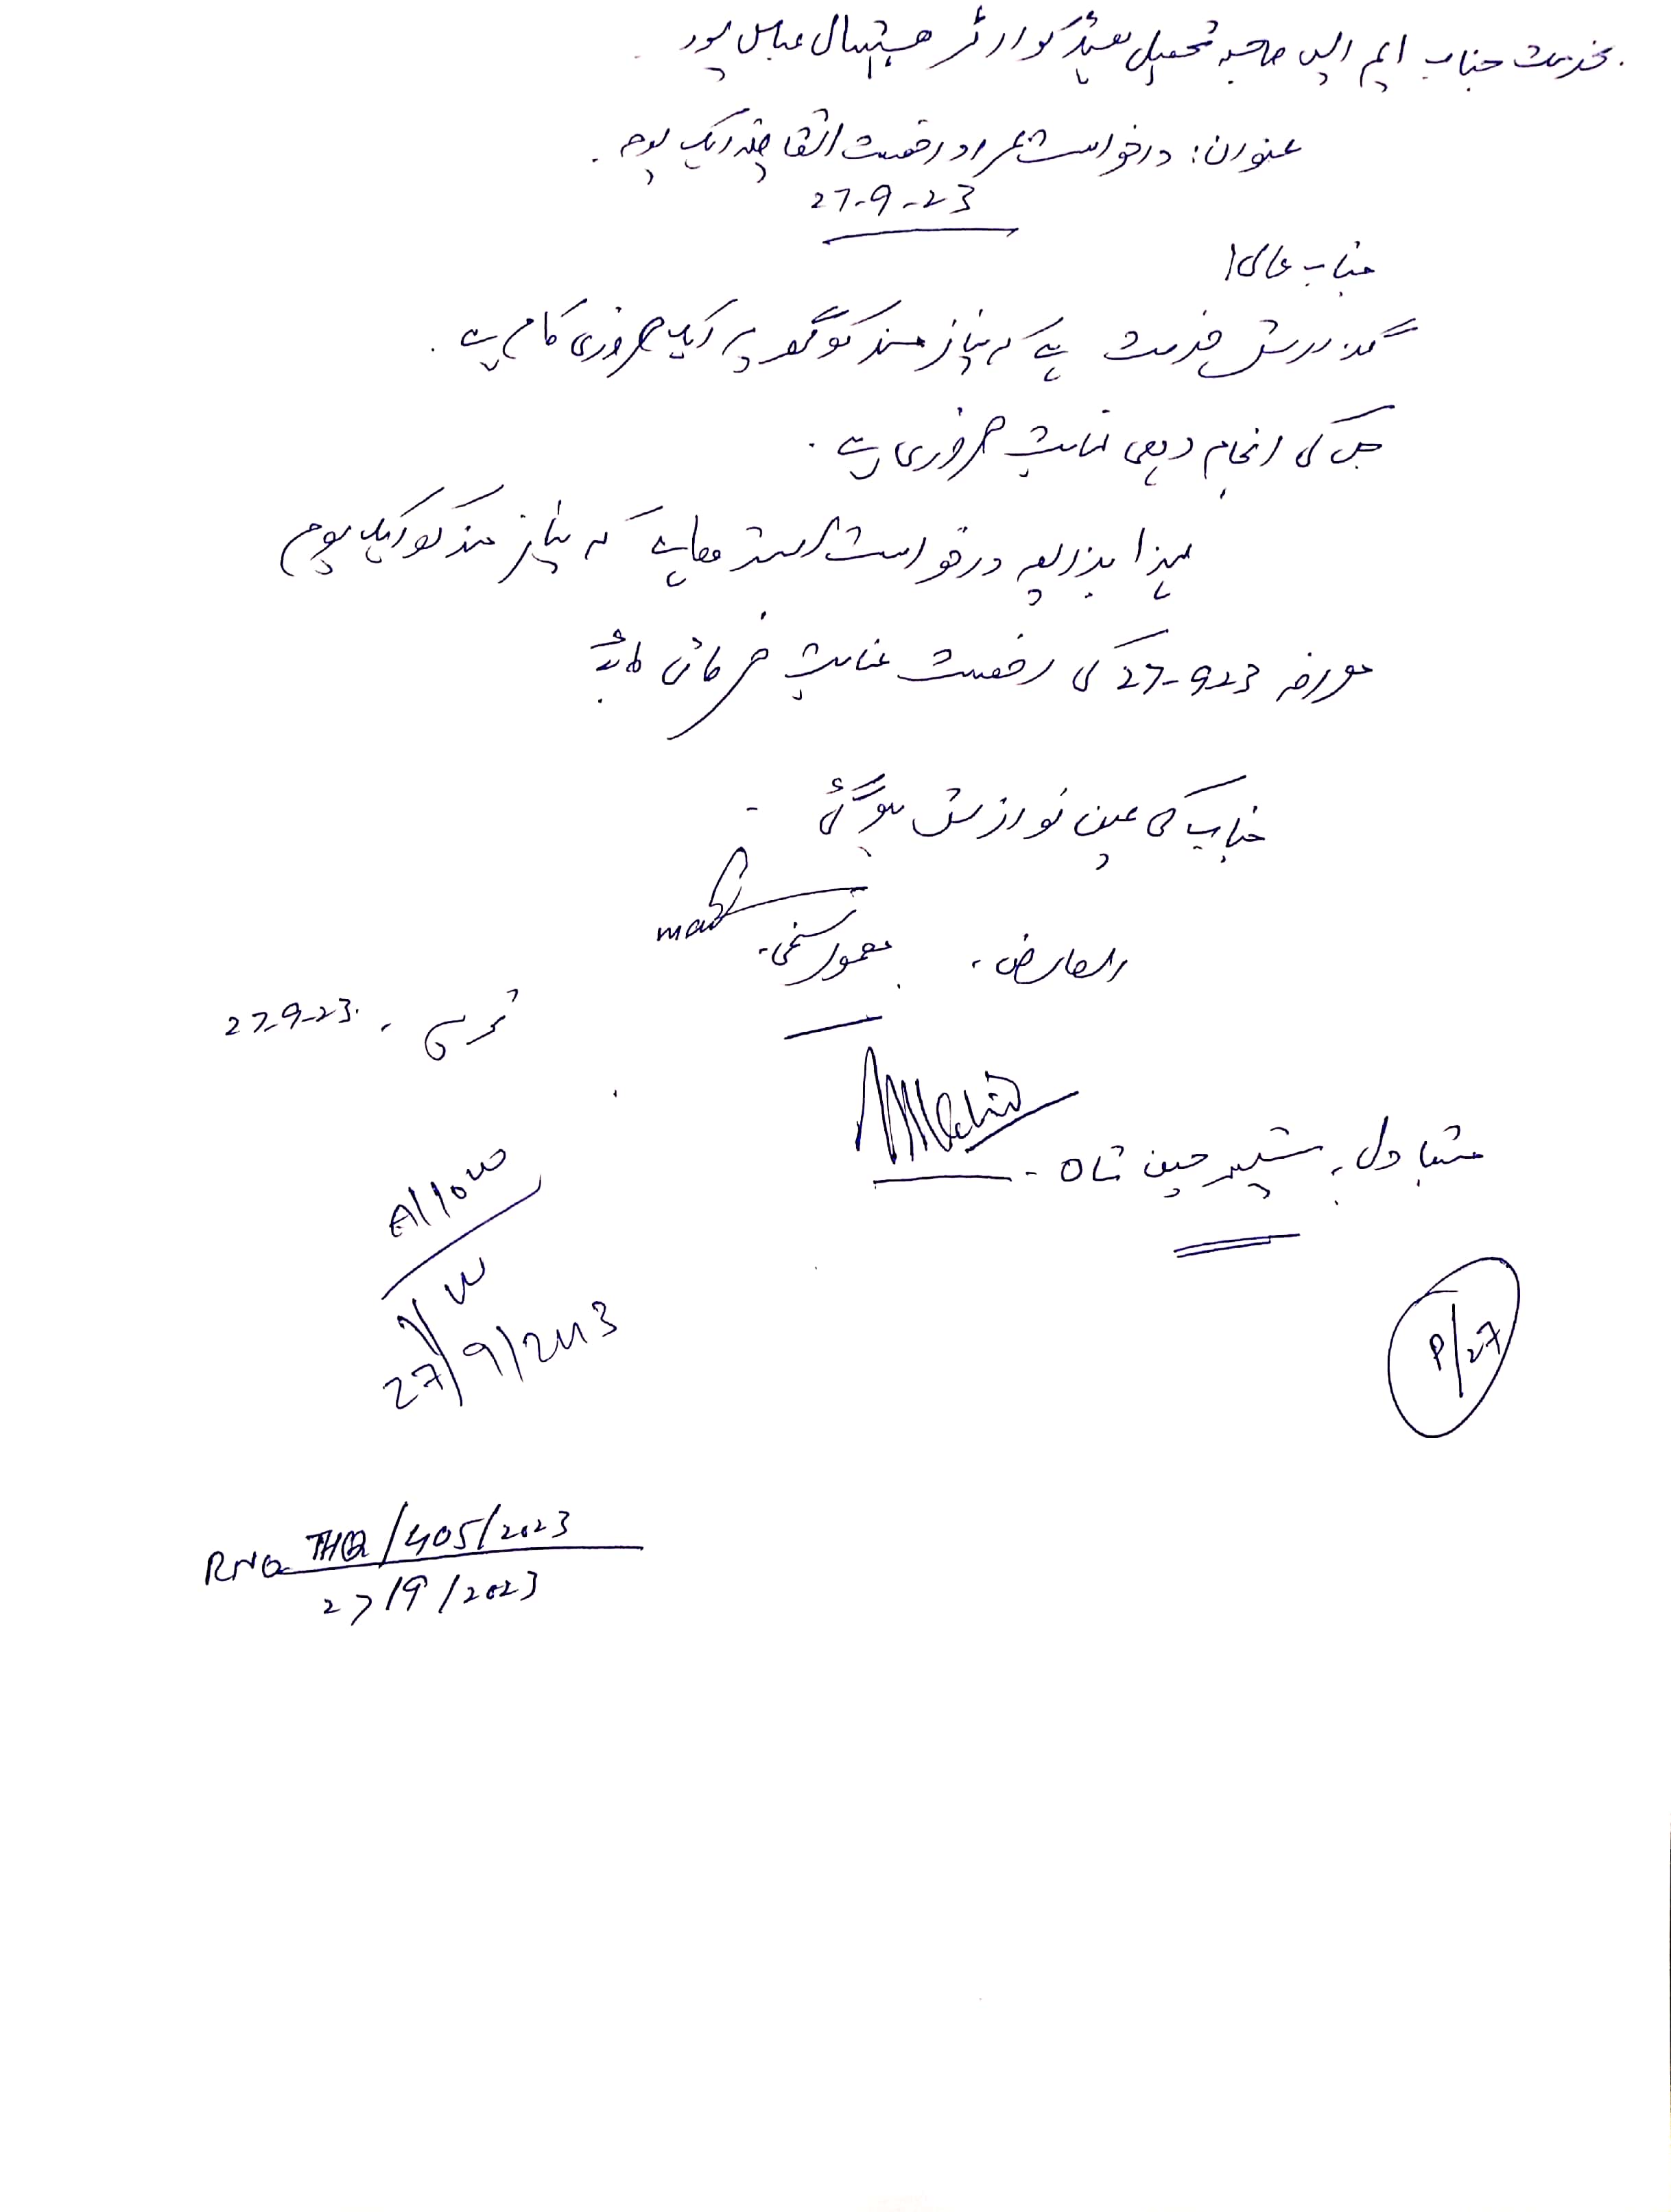 بخدمت جناب ایم ایس صاحب تحصیل ہیڈ کوارٹر ہسپتال عباس پور
عنوان: درخواست بمراد رخصت اتفاقیہ ایک یوم.
27-9-23
جناب عالی!
گذارش خدمت ہے کہ نیاز مند کو گھر پر ایک ضروری کام ہے.
جس کی انجام دہی نہایت ضروری ہے.
لہذا بذریعہ درخواست استدعا ہے کہ نیاز مند کو ایک یوم
مورخہ 27-923 کی رخصت عنایت فرمائی جائے
جناب کی عین نوازش ہوگی -
العارض،
27-9-23
متبادل، شبیر حسین شاہ -
Allow
27/9/2023
P/27
RNo THQ/405/2023
27/9/2023